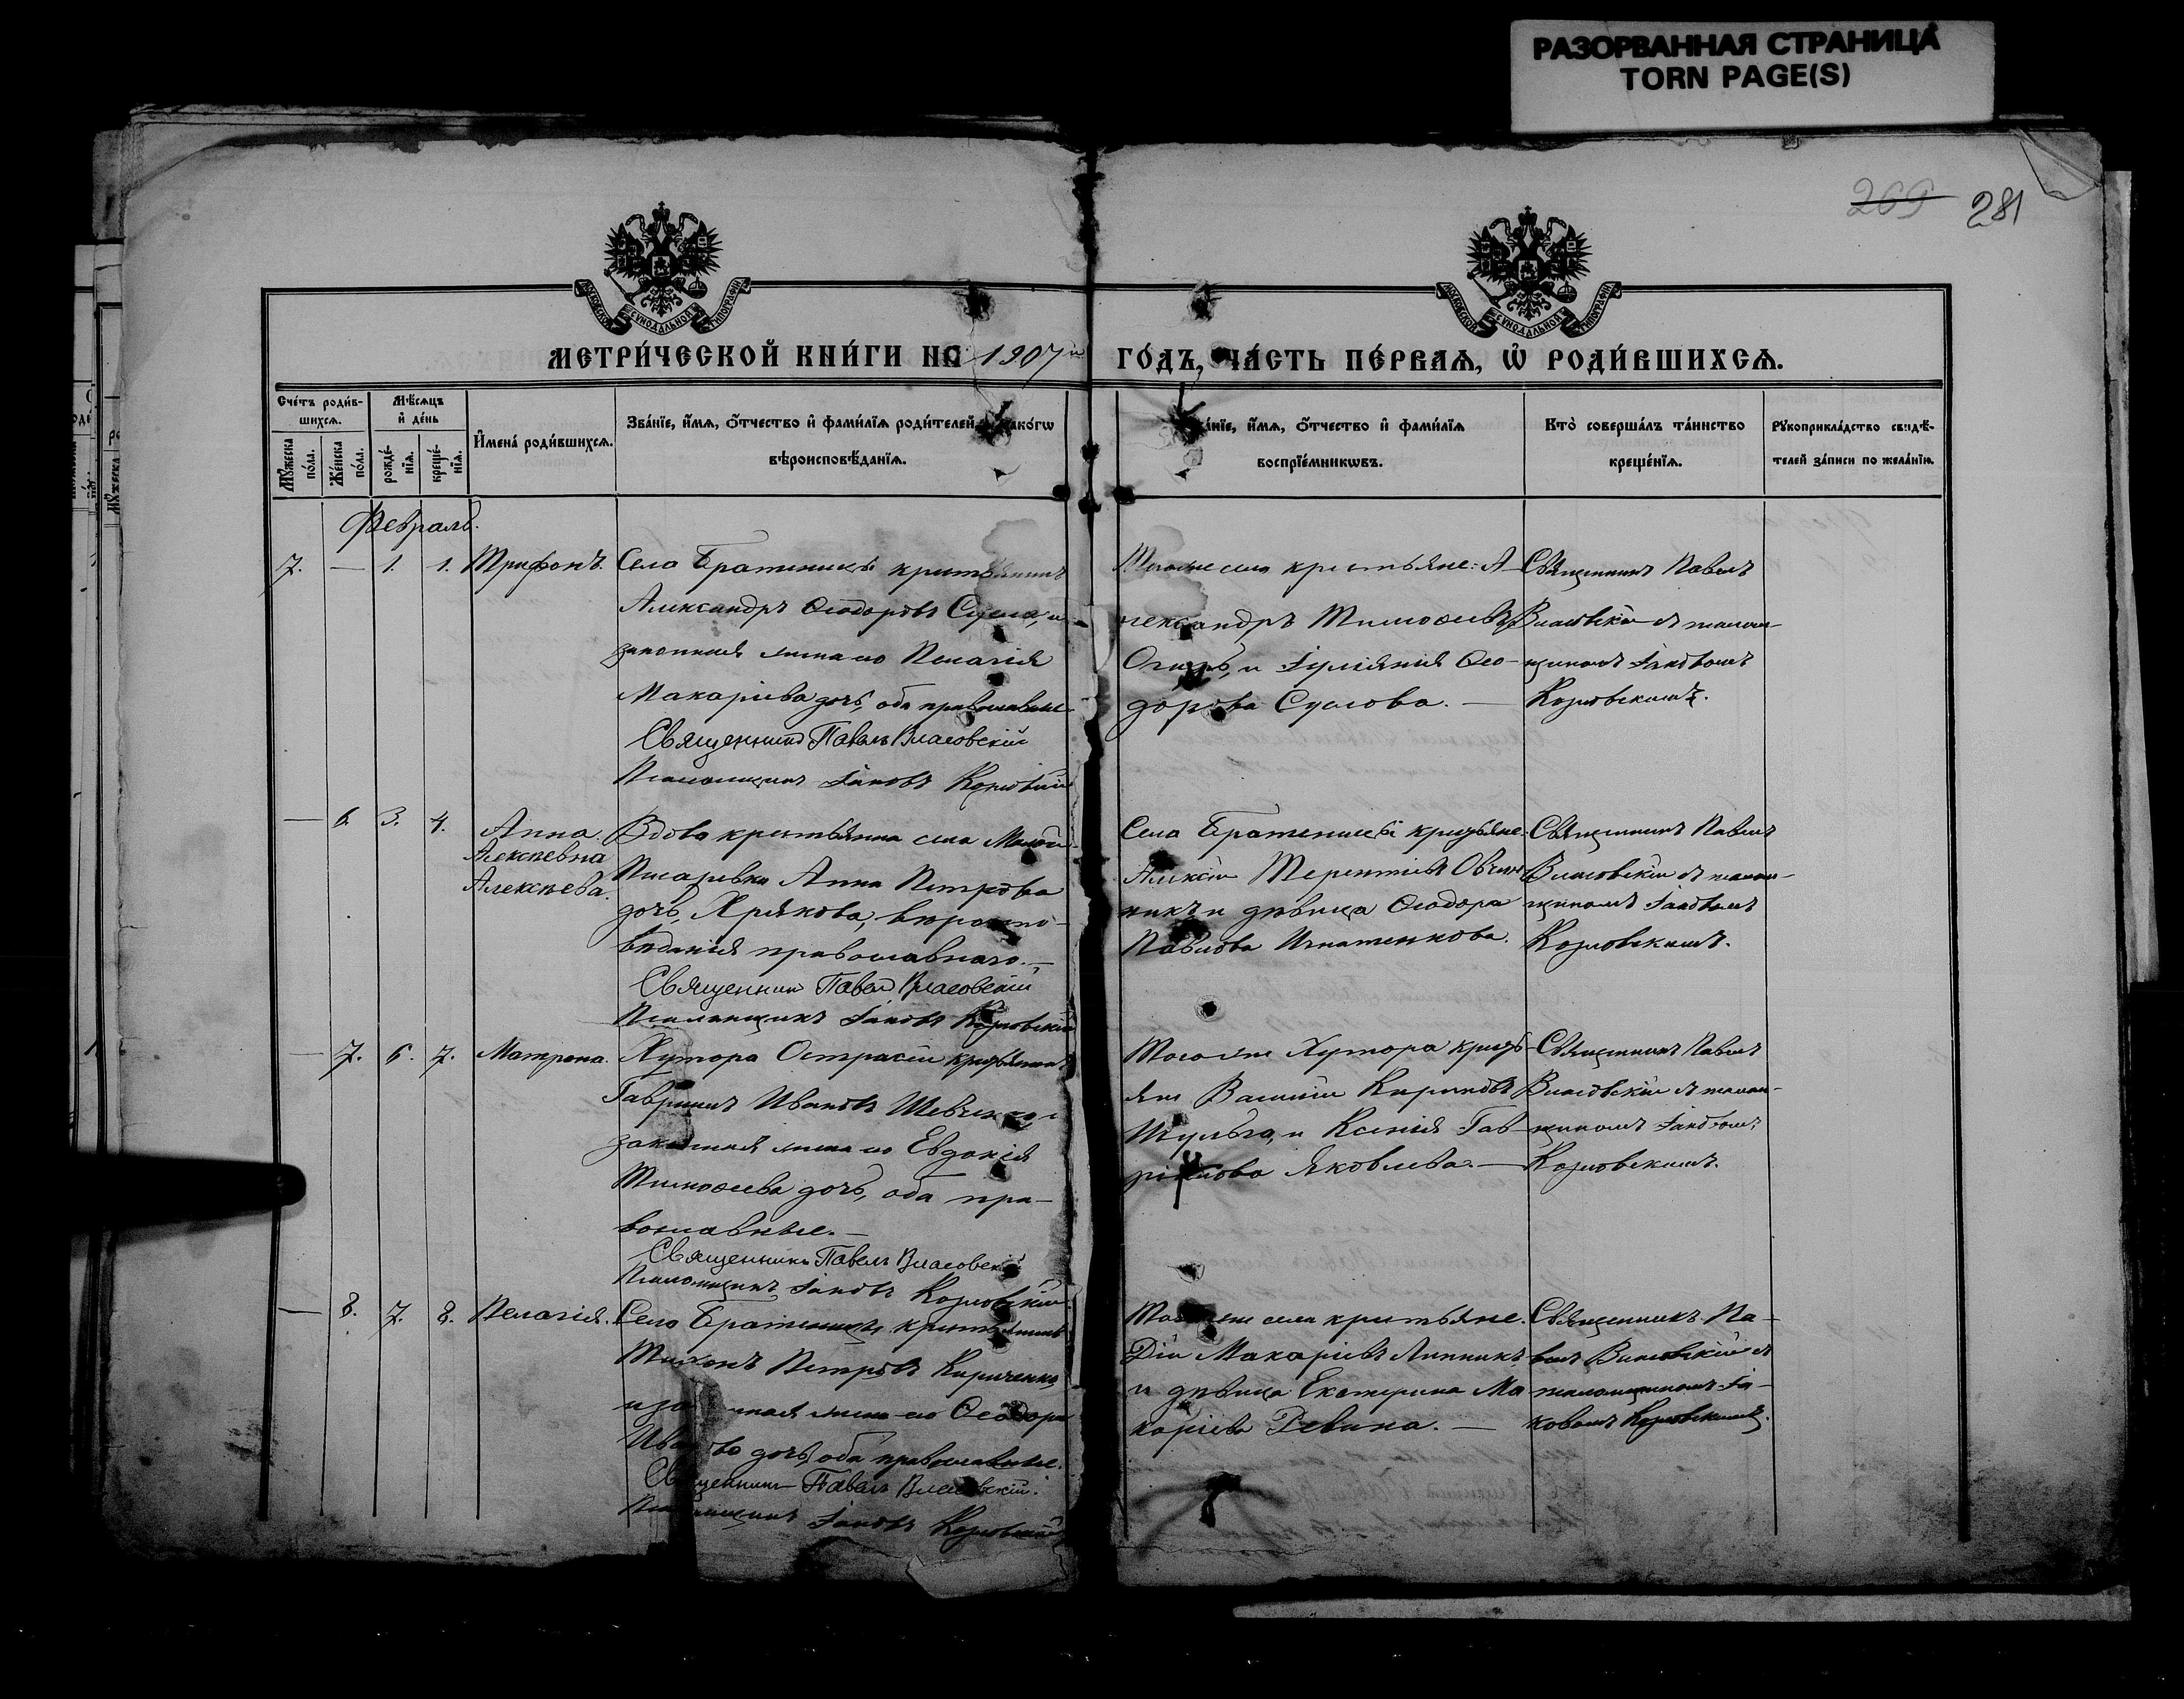 РАЗОРВАННАЯ СТРАНИЦА
TORN PAGE(S)
269 281
МОСКОВСКОЙ СѴНОДАЛЬНОЙ ТИПОГРАФІИ
МОСКОВСКОЙ СѴНОДАЛЬНОЙ ТИПОГРАФІИ
МЕТРИ́ЧЕСКОЙ КНИ́ГИ НА 1907й ГО́ДЪ, ЧА́СТЬ ПЕ́РВАѦ, Ѡ҆ РОДИ́ВШИХСѦ.
Сче́тъ роди́в-
шихсѧ.
Мꙋ́жеска по́ла.
Же́нска по́ла.
Мѣ́сѧцъ
и҆ де́нь
рожде́-
нїѧ.
креще́-
нїѧ.
И҆мена̀ роди́вшихсѧ.
Зва́нїе, и҆́мѧ, ѻ҆́тчество и҆ фами́лїѧ роди́телей, како́гѡ
вѣроисповѣ́данїѧ.
а́нїе, и҆́мѧ, ѻ҆́тчество и҆ фами́лїѧ
воспрїе́мникѡвъ.
Кто̀ соверша́лъ та́инство
креще́нїѧ.
Рꙋкоприкла́дство свидѣ́-
телей за́писи по жела́нїю.
Февраль.
7. — 1. 1. Трифонъ.
Села Братеницы крестьянинъ
Александръ Ѳеодоровъ Сусла, и
законная жена его Пелагія
Макаріева дочь, оба православные
Священникъ Павелъ Власовскій
Псаломщикъ Іаковъ Козловскій
Тогоже села крестьяне: А-
лександръ Тимоѳеевъ
и Іуліянія Ѳео-
дорова Суслова. —
Священникъ Павелъ
Власовскій съ псалом-
щикомъ Іаковомъ
Козловскимъ.
— 6. 3. 4. Анна.
Алексѣевна
Алексѣева.
Вдова крестьянка села Малой
Писаревки Анна Петрова
дочь, Хрякова, вѣроиспо-
вѣданія православнаго. —
Священникъ Павелъ Власовскій
Псаломщикъ Іаковъ Козловскій
Села Братеницы крестьяне
Алексій Терентіевъ Овчин-
никъ и дѣвица Ѳеодора
Павлова Игнатенкова.
Священникъ Павелъ
Власовскій съ псалом-
щикомъ Іаковомъ
Козловскимъ.
— 7. 6. 7. Матрона.
Хутора крестьянинъ
Гавріилъ Ивановъ Шевченко, и
законная жена его Евдокія
Тимоѳеева дочь, оба пра-
вославные. —
Священникъ Павелъ Власовскій
Псаломщикъ Іаковъ Козловскій.
Тогоже Хутора кресть-
яне Василій Кириловъ
Шульга, и Ксенія Гав-
ріилова Яковлева. —
Священникъ Павелъ
Власовскій съ псалом-
щикомъ Іаковомъ
Козловскимъ.
— 8. 7. 8. Пелагія.
Села Братеницы крестьянинъ
Тихонъ Петровъ Кириченко,
и законная жена его Ѳеодора
Иванова дочь, оба православные.
Священникъ Павелъ Власовскій.
Псаломщикъ Іаковъ Козловскій
Тогоже села крестьяне:
Дій Макаріевъ Линникъ
и дѣвица Екатерина Ма-
каріева Ревина. —
Священникъ Па-
велъ Власовскій съ
псаломщикомъ Іа-
ковомъ Козловскимъ.